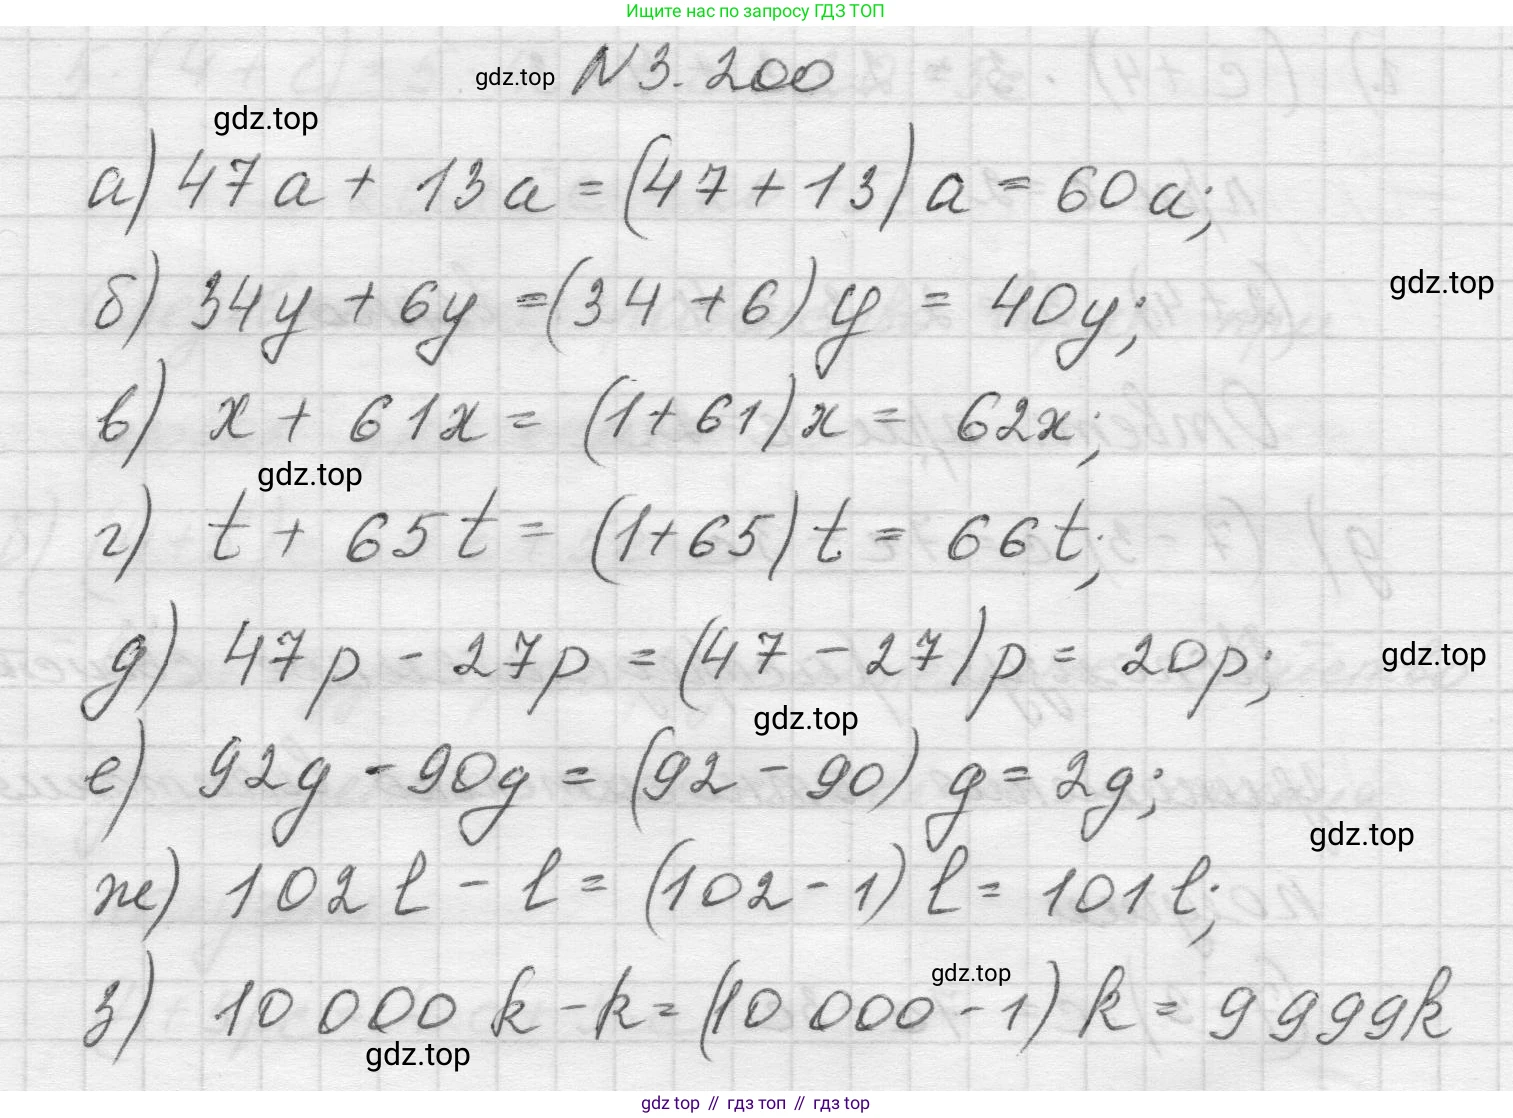 Ищите нас по запросу ГДЗ ТОП
gdz.top N 3. 200
gdz.top
а) 47a + 13a = (47 + 13) a = 60a;
gdz.top
б) 34y + 6y = (34 + 6) y = 40y;
в) x + 61x = (1 + 61) x = 62x;
gdz.top
г) t + 65t = (1 + 65) t = 66t;
д) 47p - 27p = (47 - 27) p = 20p;
gdz.top
gdz.top
е) 92g - 90g = (92 - 90) g = 2g;
gdz.top
ж) 102l - l = (102 - 1) l = 101l;
gdz.top
з) 10 000 k - k = (10 000 - 1) k = 9 999k
gdz.top
gdz top // гдз топ // гдз top